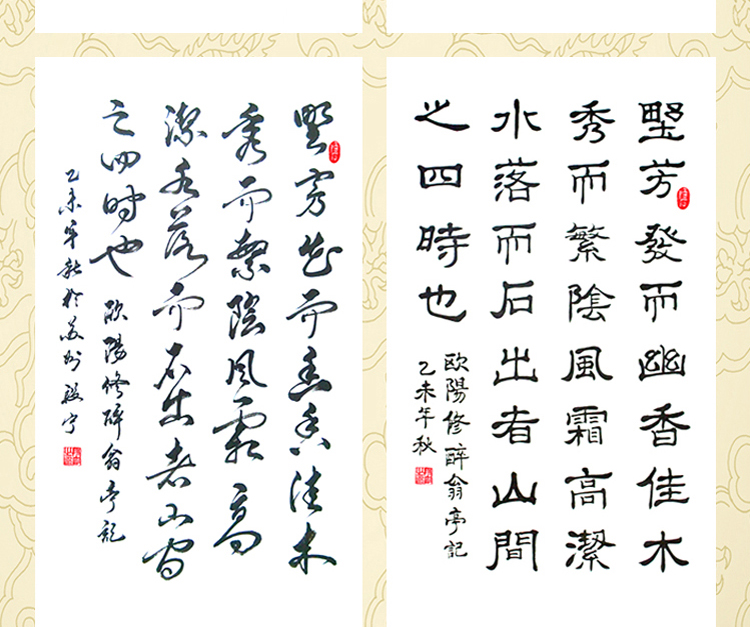 野芳發而幽香佳木
秀而繁陰風霜高
潔水落而石出者山間
之四時也
歐陽修醉翁亭記
乙未年秋於蘇州
野芳發而幽香佳木
秀而繁陰風霜高潔
水落而石出者山間
之四時也
歐陽修醉翁亭記
乙未年秋